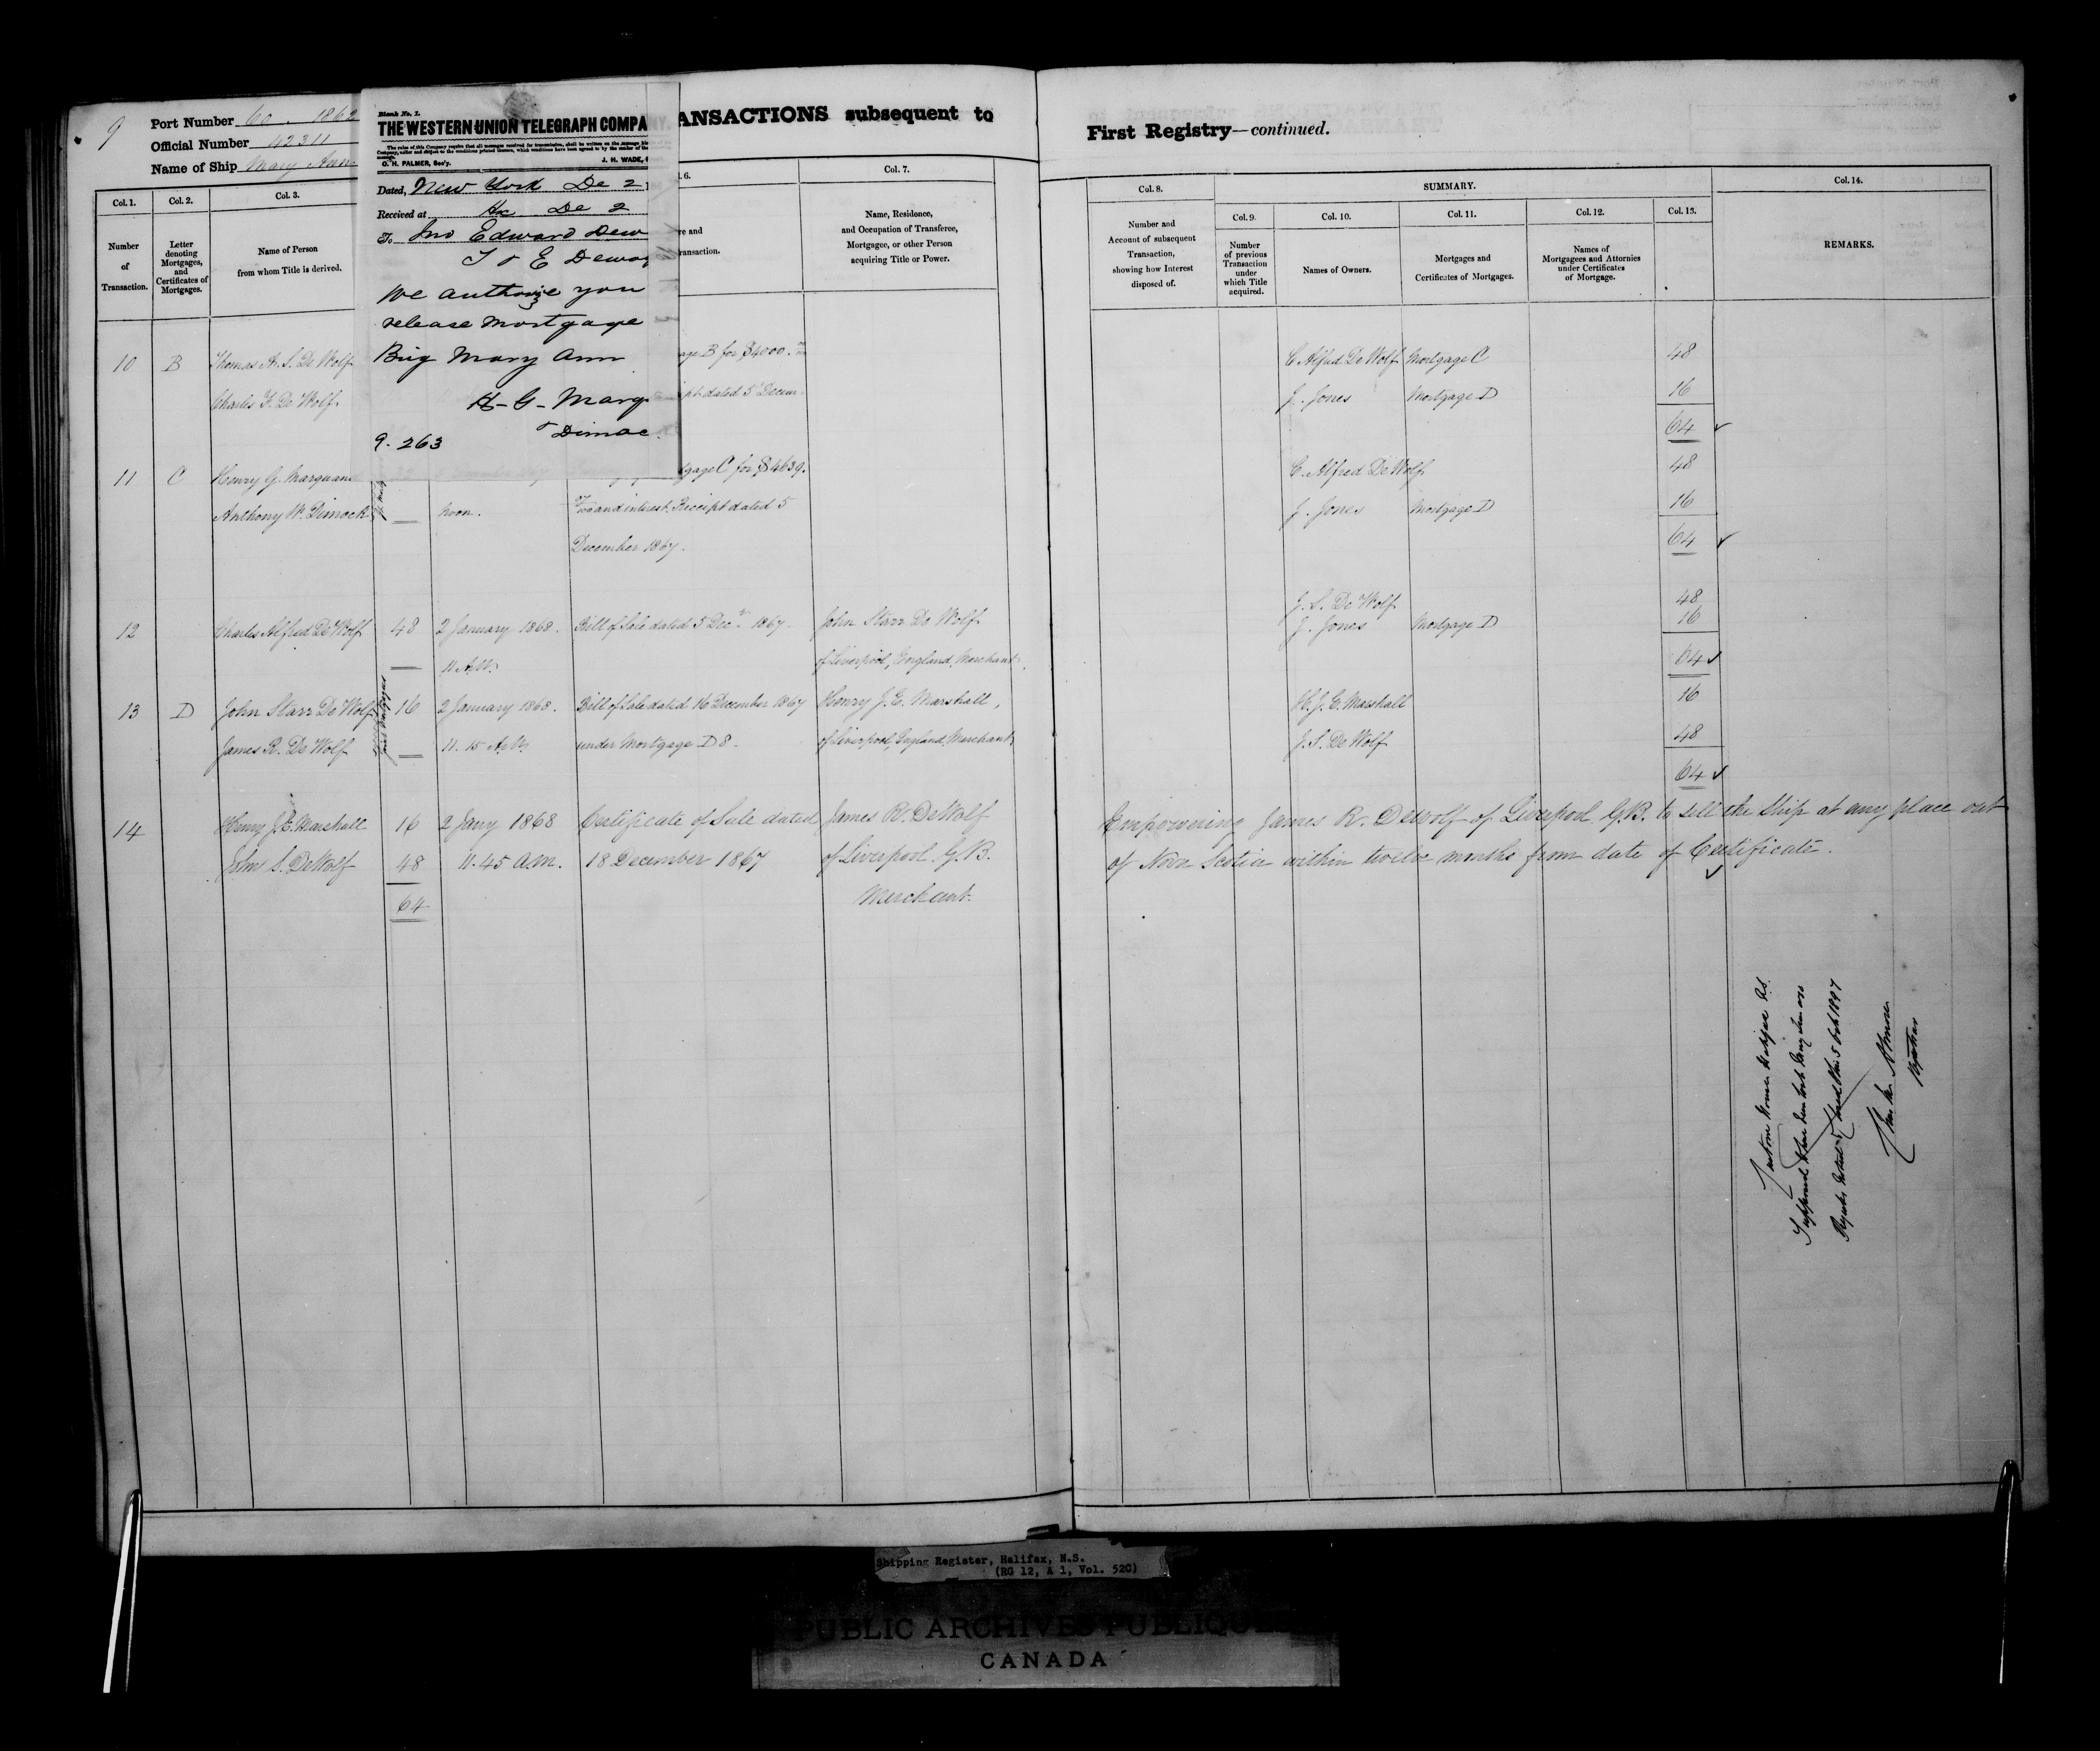 9
Port Number 60. 1862
Official Number 42311
Name of Ship Mary Ann
Blank No. 1.
THE WESTERN UNION TELEGRAPH COMPA
O. H. PALMER, Sec'y. J. H. WADE,
Dated, New York De 2
Received at Hx De 2
To Jno Edward Dew
We authorize you
release mortgage
Brig Mary Ann
H-G-Marq
Dimoc
9.263
ANSACTIONS subsequent to
First Registry—continued.
Col. 1. Col. 2. Col. 3. Col. 7.
Number of Transaction.
Letter denoting Mortgages, and Certificates of Mortgages.
Name of Person from whom Title is derived.
re and
ransaction.
Name, Residence, and Occupation of Transferee, Mortgagee, or other Person acquiring Title or Power.
Col. 8. SUMMARY. Col. 14.
Col. 9. Col. 10. Col. 11. Col. 12. Col. 13.
Number and Account of subsequent Transaction, showing how Interest disposed of.
Number of previous Transaction under which Title acquired.
Names of Owners.
Mortgages and Certificates of Mortgages.
Names of Mortgagees and Attornies under Certificates of Mortgage.
REMARKS.
10 B Thomas A. S. De Wolf age B for $4000. C Alfred De Wolf Mortgage C 48
Charles F. De Wolf pt dated 5 Decem J. Jones Mortgage D 16
64
11 C Henry G. Marquand gage C for $4639. C. Alfred De Wolf 48
Anthony W. Dimock noon. and interest. Receipt dated 5 J. Jones Mortgage D 16
December 1867. 64
J. S. De Wolf 48
12 Charles Alfred De Wolf 48 2 January 1868. Bill of Sale dated 5 Decr 1867. John Starr De Wolf J. Jones Mortgage D 16
11 A.M. of Liverpool, England, Merchant. 64
13 D John Starr De Wolf 16 2 January 1868. Bill of Sale dated 16 December 1867 Henry J. E. Marshall, H. J. E. Marshall 16
James R. De Wolf 11.15 A.M. under Mortgage D 8. of Liverpool, England, Merchant J. S. De Wolf 48
64
14 Henry J. E. Marshall 16 2 Jany 1868 Certificate of Sale dated James R. DeWolf Empowering James R. Dewolf of Liverpool G.B. to sell the Ship at any place out
John S. DeWolf 48 11.45 A.M. 18 December 1867 of Liverpool G.B. of Nova Scotia within twelve months from date of Certificate.
64 Merchant.
Custom House Halifax NS
Registrar
Shipping Register, Halifax, N.S.
(RG 12, A 1, Vol. 520)
PUBLIC ARCHIVES PUBLIQUES
CANADA